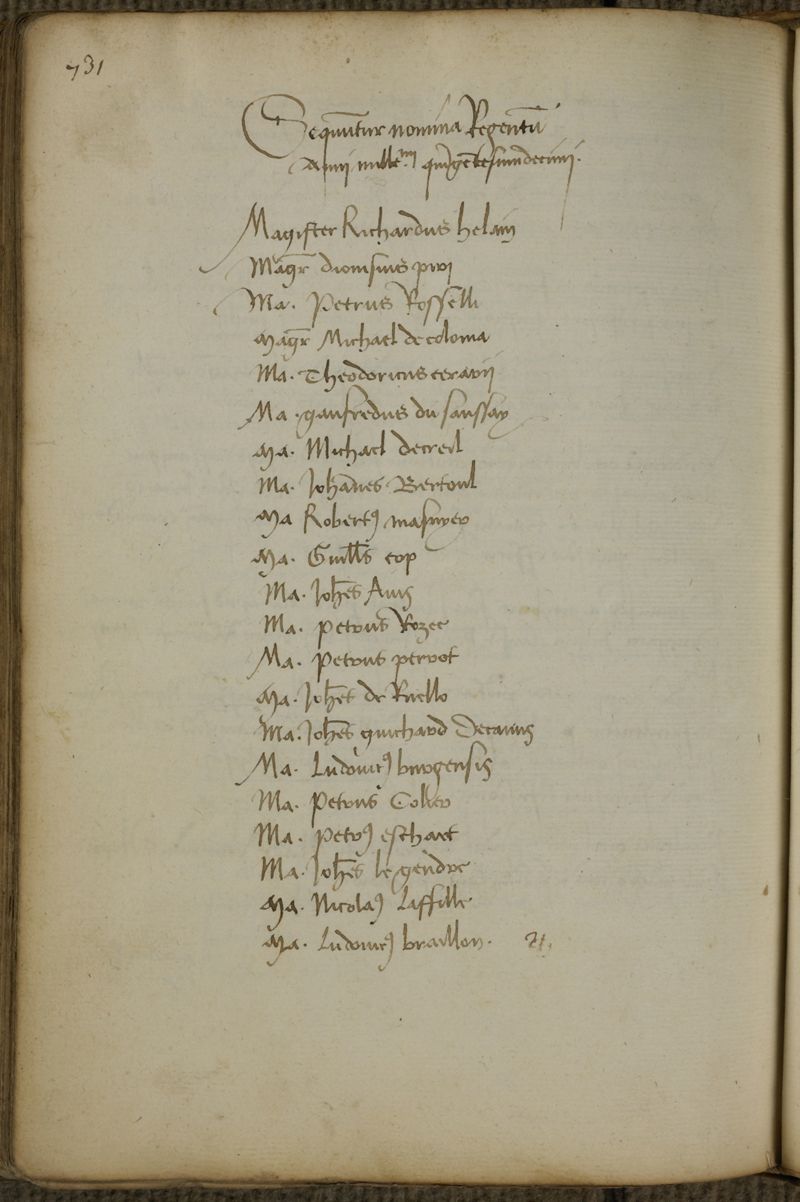 731
Sequuntur nomina Regentū
Anni mille.mi quīgētesimi decimi.
Magister Richardus helain
Magr dionisius
Ma. Petrus Rosselli
Magr Michael de coloma
Ma. Theodoricus
Ma. gaufredus du saussay
Ma. Michael decreil
Ma. Johānes Bertoul
Ma Robertꝰ masuyer
Ma. Guillūs cop
Ma. Johēs Avis
Ma. petrus Rozee
Ma. petrus perrot
Ma. Johēs de Ruello
Ma. Johēs guichard
Ma. Ludovicꝰ brugensis
Ma. Petrus
Ma. petrꝰ eschart
Ma. Johēs le gendre
Ma. Nicolaꝰ laffille
Ma. Ludovicꝰ braillon. 21.